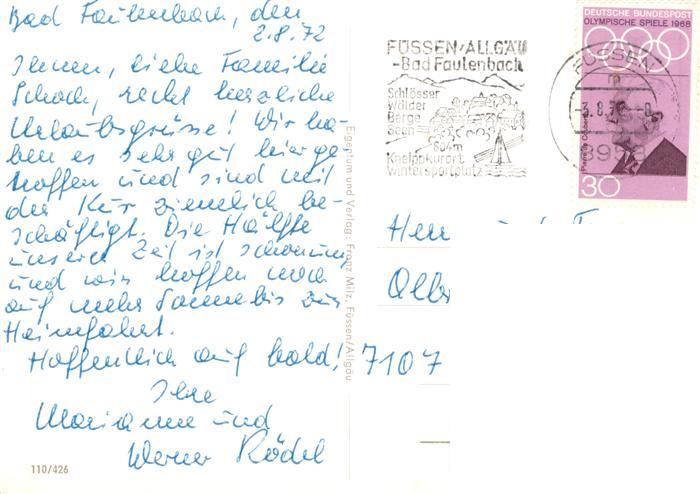 Bad Faulenbach, den
2.8.72
Ihnen, liebe Familie
Schoch, recht herzliche
Urlaubsgrüsse! Wir ha-
ben es sehr gut hier ge-
troffen und sind mit
der Kur ziemlich be-
schäftigt. Die Hälfte
unserer Zeit ist schon um
und wir hoffen noch
auf mehr Sonne bis zur
Heimfahrt.
Hoffentlich auf bald!
Ihre
Marianne und
Werner Rödel
110/426
Eigentum und Verlag: Franz Milz, Füssen/Allgäu
FÜSSEN/ALLGÄU
-Bad Faulenbach
Schlösser
Wälder
Berge
Seen
804m
Kneippkurort
Wintersportplatz
FÜSSEN
-3.8.
8958
DEUTSCHE BUNDESPOST
OLYMPISCHE SPIELE 1968
30
Herr
7107